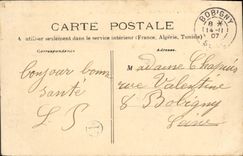 CARTE POSTALE
A utiliser seulement dans le service intérieur (France, Algérie, Tunisie)
Correspondance
BOBIGNY
14-11
07
Bonjour bonne
Santé
L P
Madame
rue Valentine
8 Bobigny
Seine